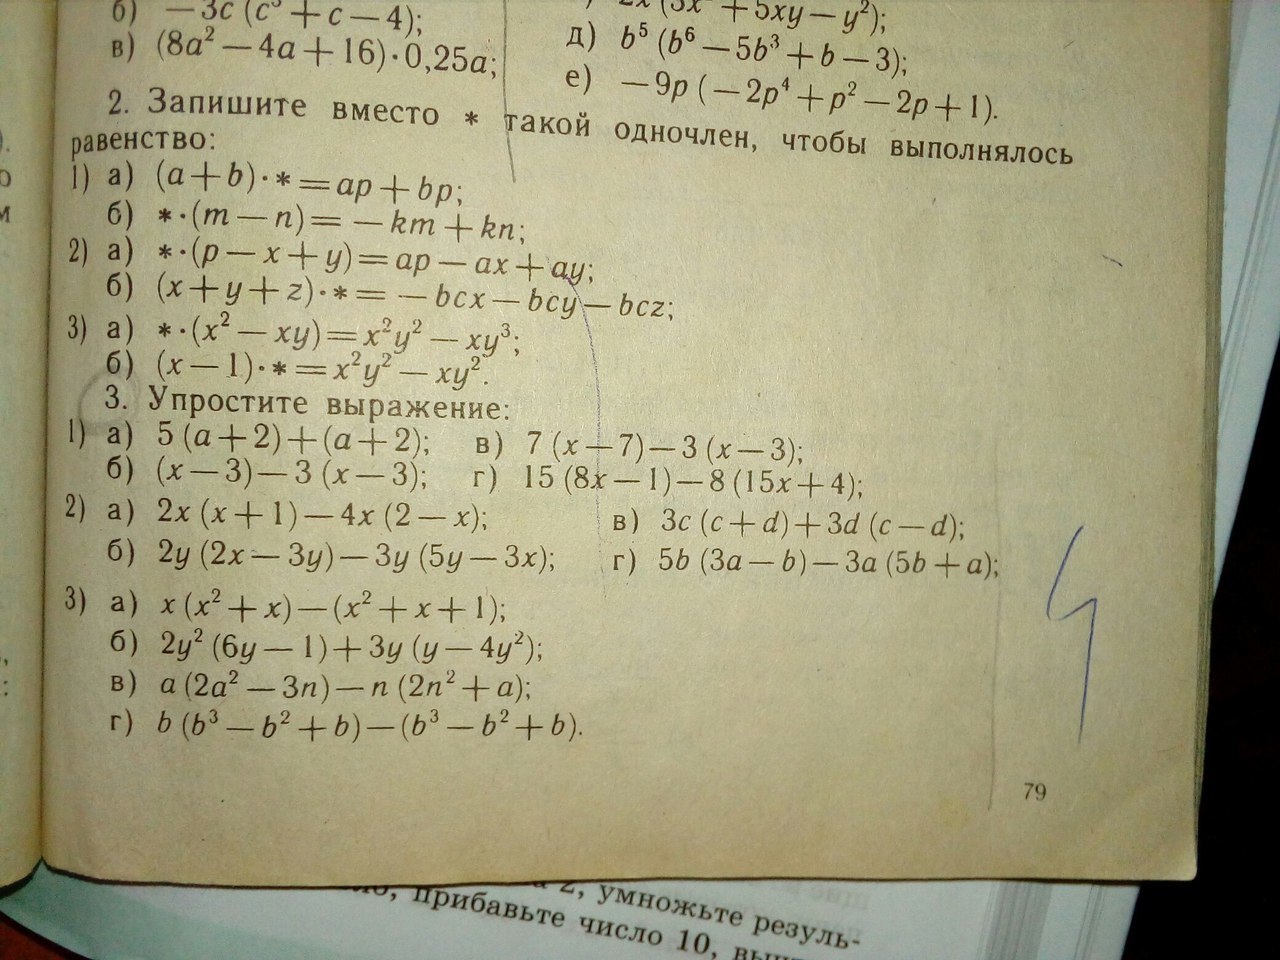 б) −3c (c³ + c − 4);
2x (3x² + 5xy − y²);
в) (8a² − 4a + 16)·0,25a;
д) b⁵ (b⁶ − 5b³ + b − 3);
е) −9p (−2p⁴ + p² − 2p + 1).
2. Запишите вместо * такой одночлен, чтобы выполнялось
равенство:
1) а) (a + b)·* = ap + bp;
б) *·(m − n) = −km + kn;
2) а) *·(p − x + y) = ap − ax + ay;
б) (x + y + z)·* = −bcx − bcy − bcz;
3) а) *·(x² − xy) = x²y² − xy³;
б) (x − 1)·* = x²y² − xy².
3. Упростите выражение:
1) а) 5 (a + 2) + (a + 2); в) 7 (x − 7) − 3 (x − 3);
б) (x − 3) − 3 (x − 3); г) 15 (8x − 1) − 8 (15x + 4);
2) а) 2x (x + 1) − 4x (2 − x); в) 3c (c + d) + 3d (c − d);
б) 2y (2x − 3y) − 3y (5y − 3x); г) 5b (3a − b) − 3a (5b + a);
3) а) x (x² + x) − (x² + x + 1);
б) 2y² (6y − 1) + 3y (y − 4y²);
в) a (2a² − 3n) − n (2n² + a);
г) b (b³ − b² + b) − (b³ − b² + b).
79
2, умножьте резуль-
прибавьте число 10,